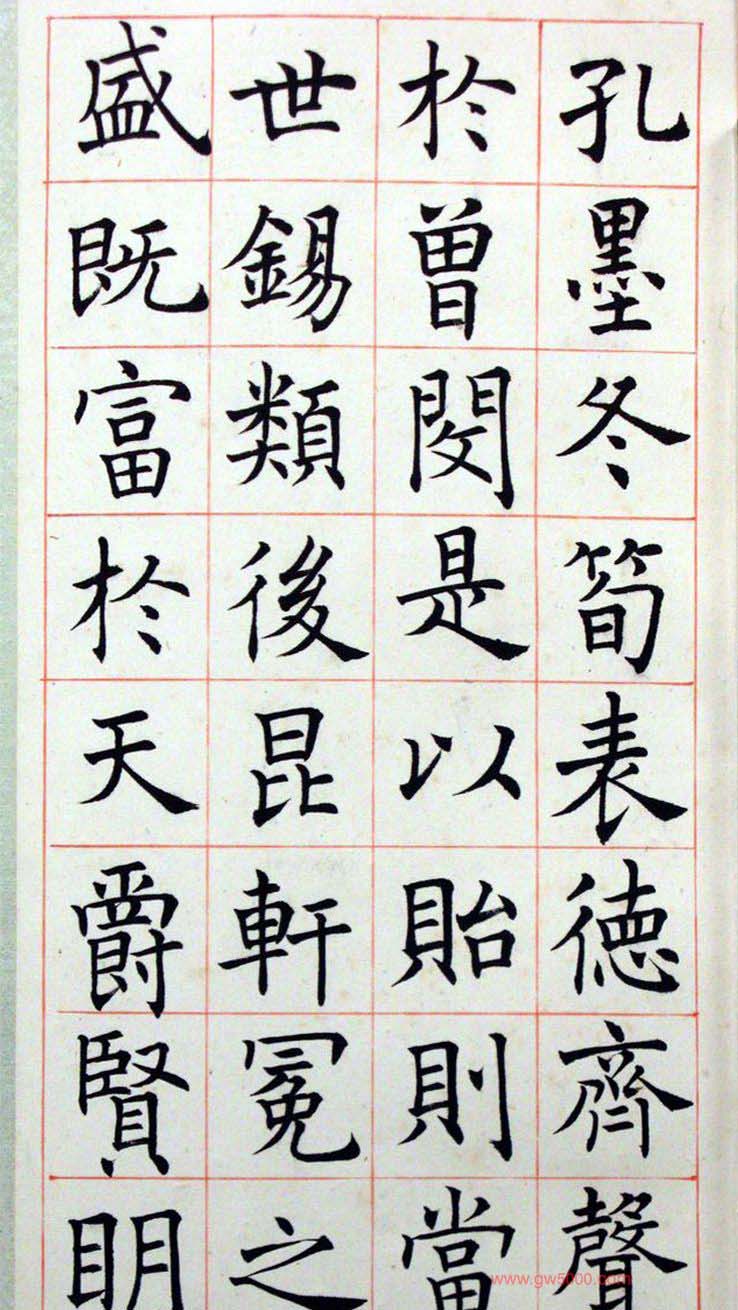 孔墨冬筍表德齊聲
於曾閔是以貽則當
世錫類後昆軒冕之
盛既富於天爵賢明
www.gw5000.com